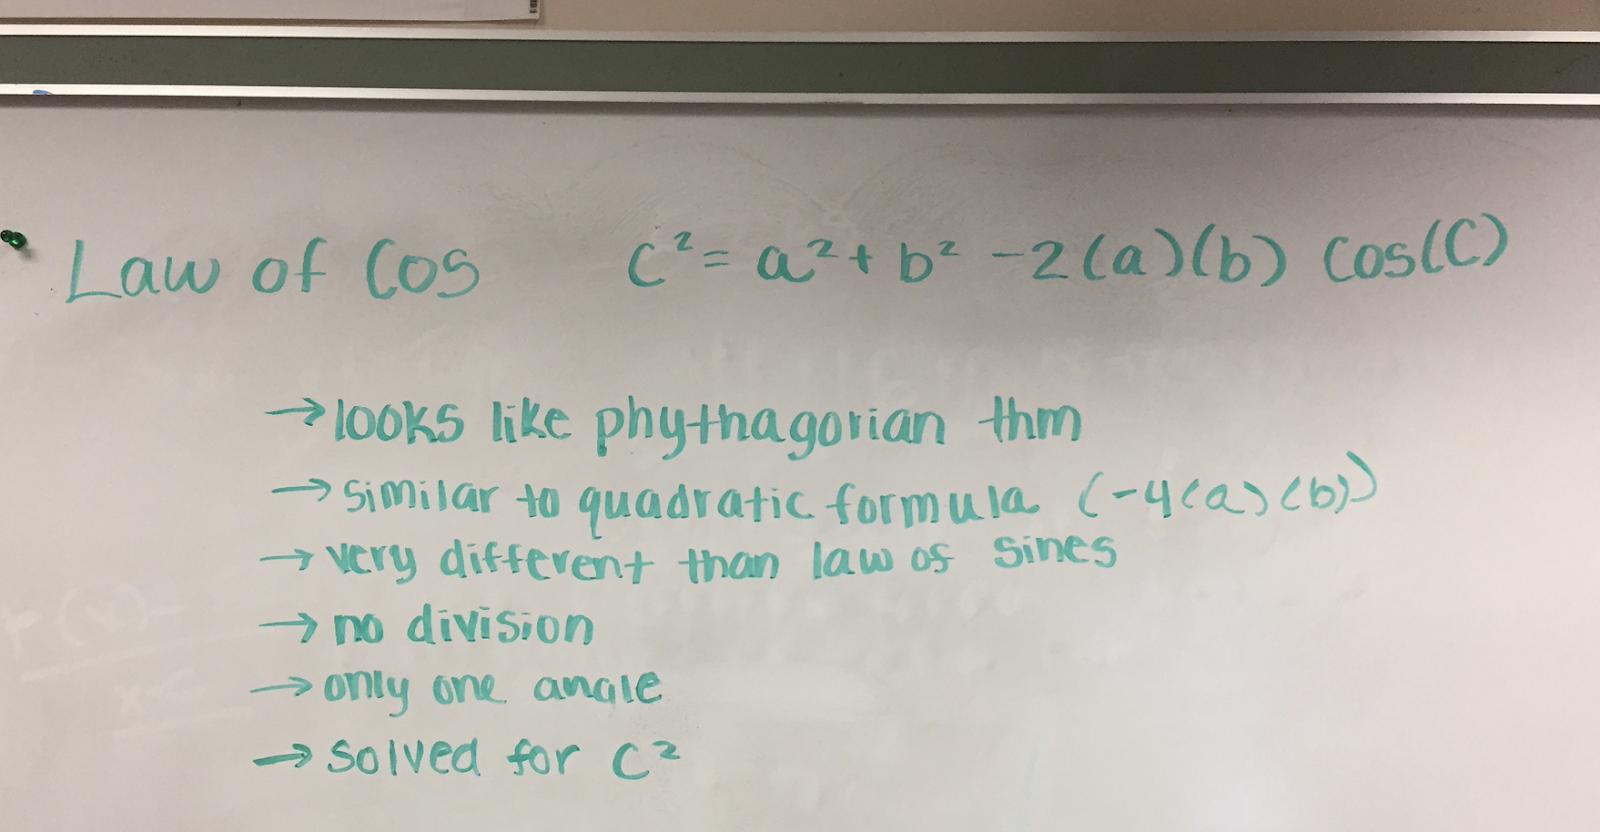 Law of Cos c² = a² + b² - 2(a)(b) cos(C)
→ looks like phythagorian thm
→ similar to quadratic formula (-4(a)(b))
→ very different than law of sines
→ no division
→ only one angle
→ solved for c²